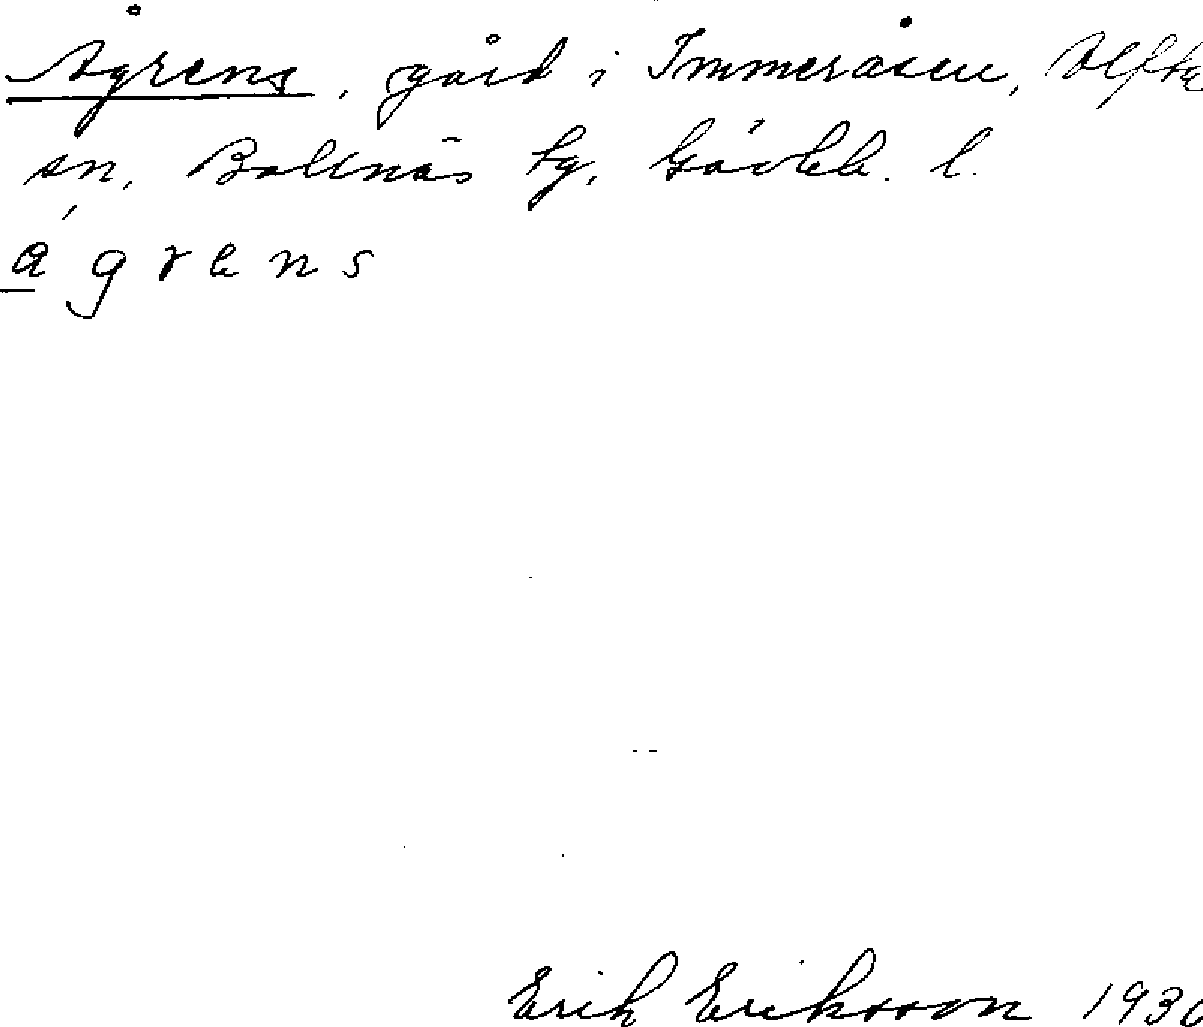 Ågrens, gård i Immeråsen, Alfta
sn, Bollnäs tg, Gävleb. l.
a g r e n s
Erik Eriksson 1930